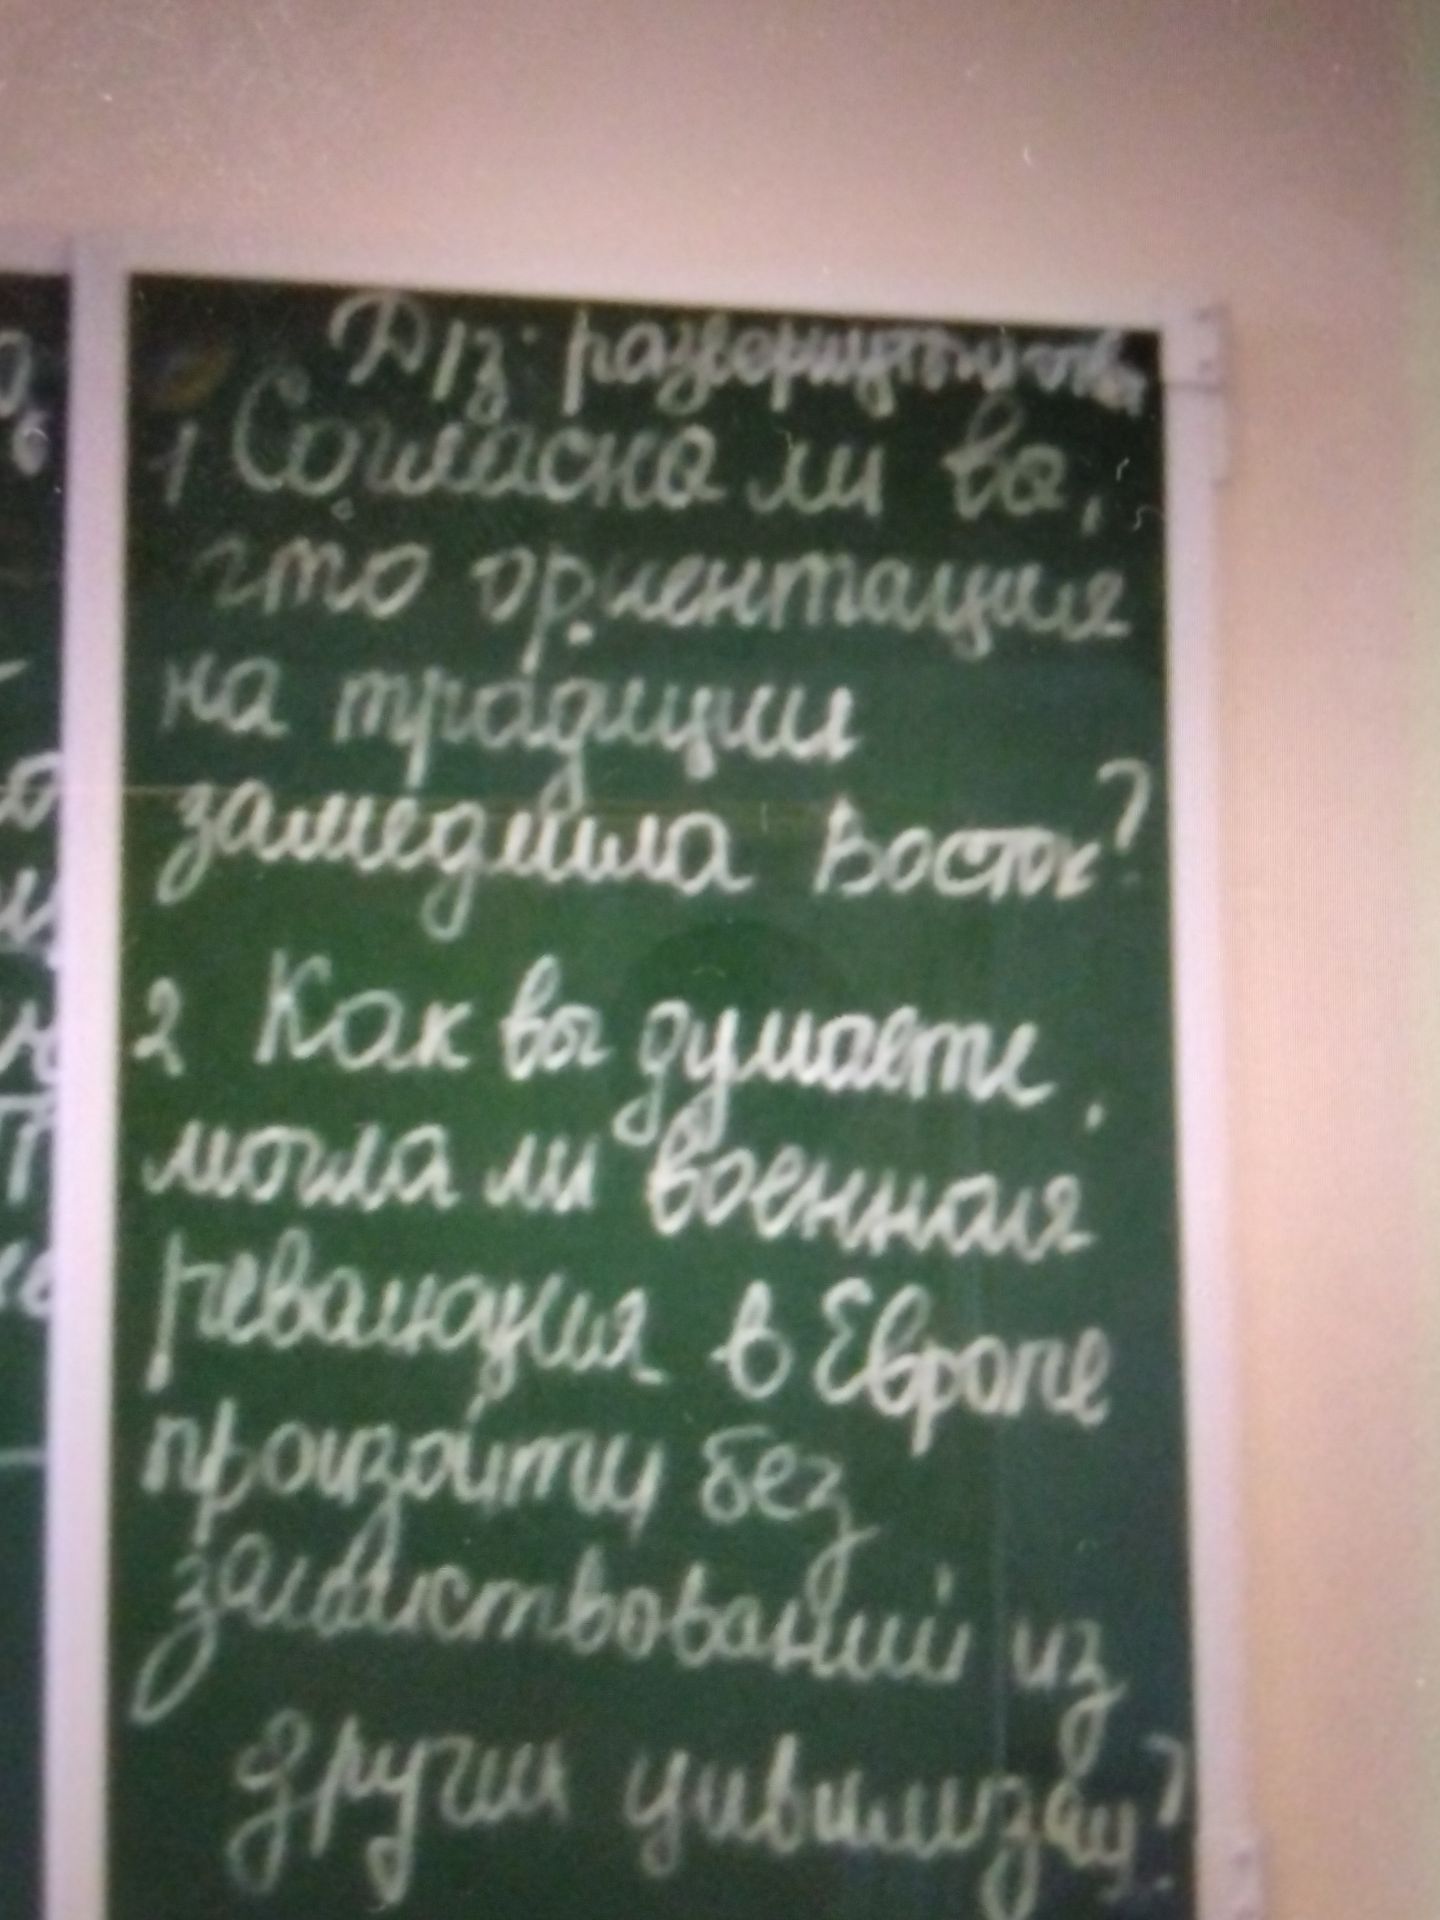 Д/з: развернутый отв.
1 Согласна ли вы,
что ориентация
на традиции
замедлила Восток?
2 Как вы думаете,
могла ли военная
революция в Европе
произойти без
заимствований из
других цивилизаци?